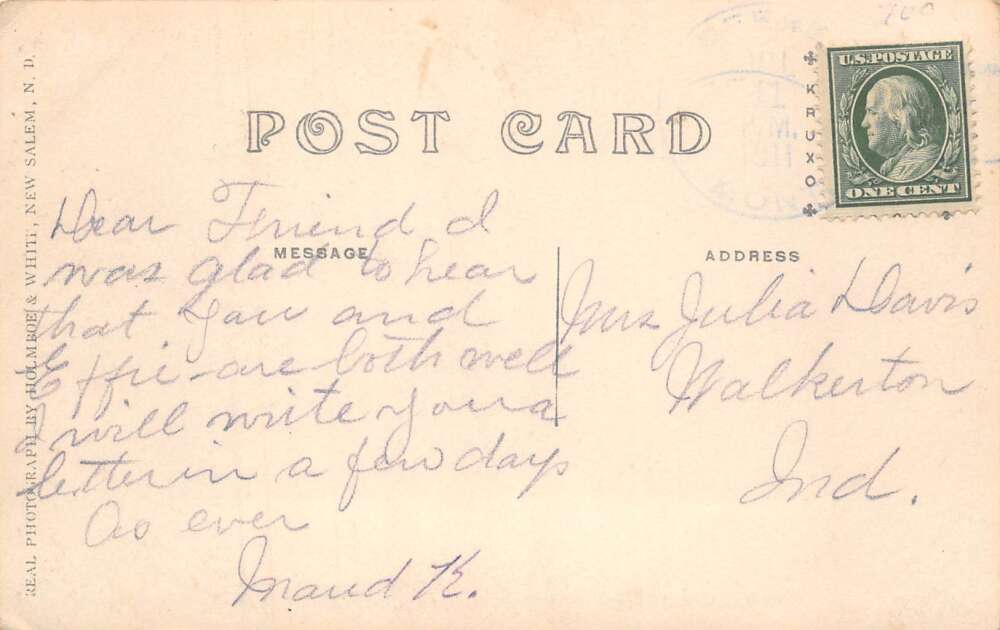 POST CARD
U.S. POSTAGE
ONE CENT
KRUXO
MESSAGE
ADDRESS
Dear Friend I
was glad to hear
that you and
Effie are both well
I will write you a
letter in a few days
As ever
Maud K.
Mrs Julia Davis
Walkerton
Ind.
REAL PHOTOGRAPH BY HOLMBOE & WHITE, NEW SALEM, N. D.